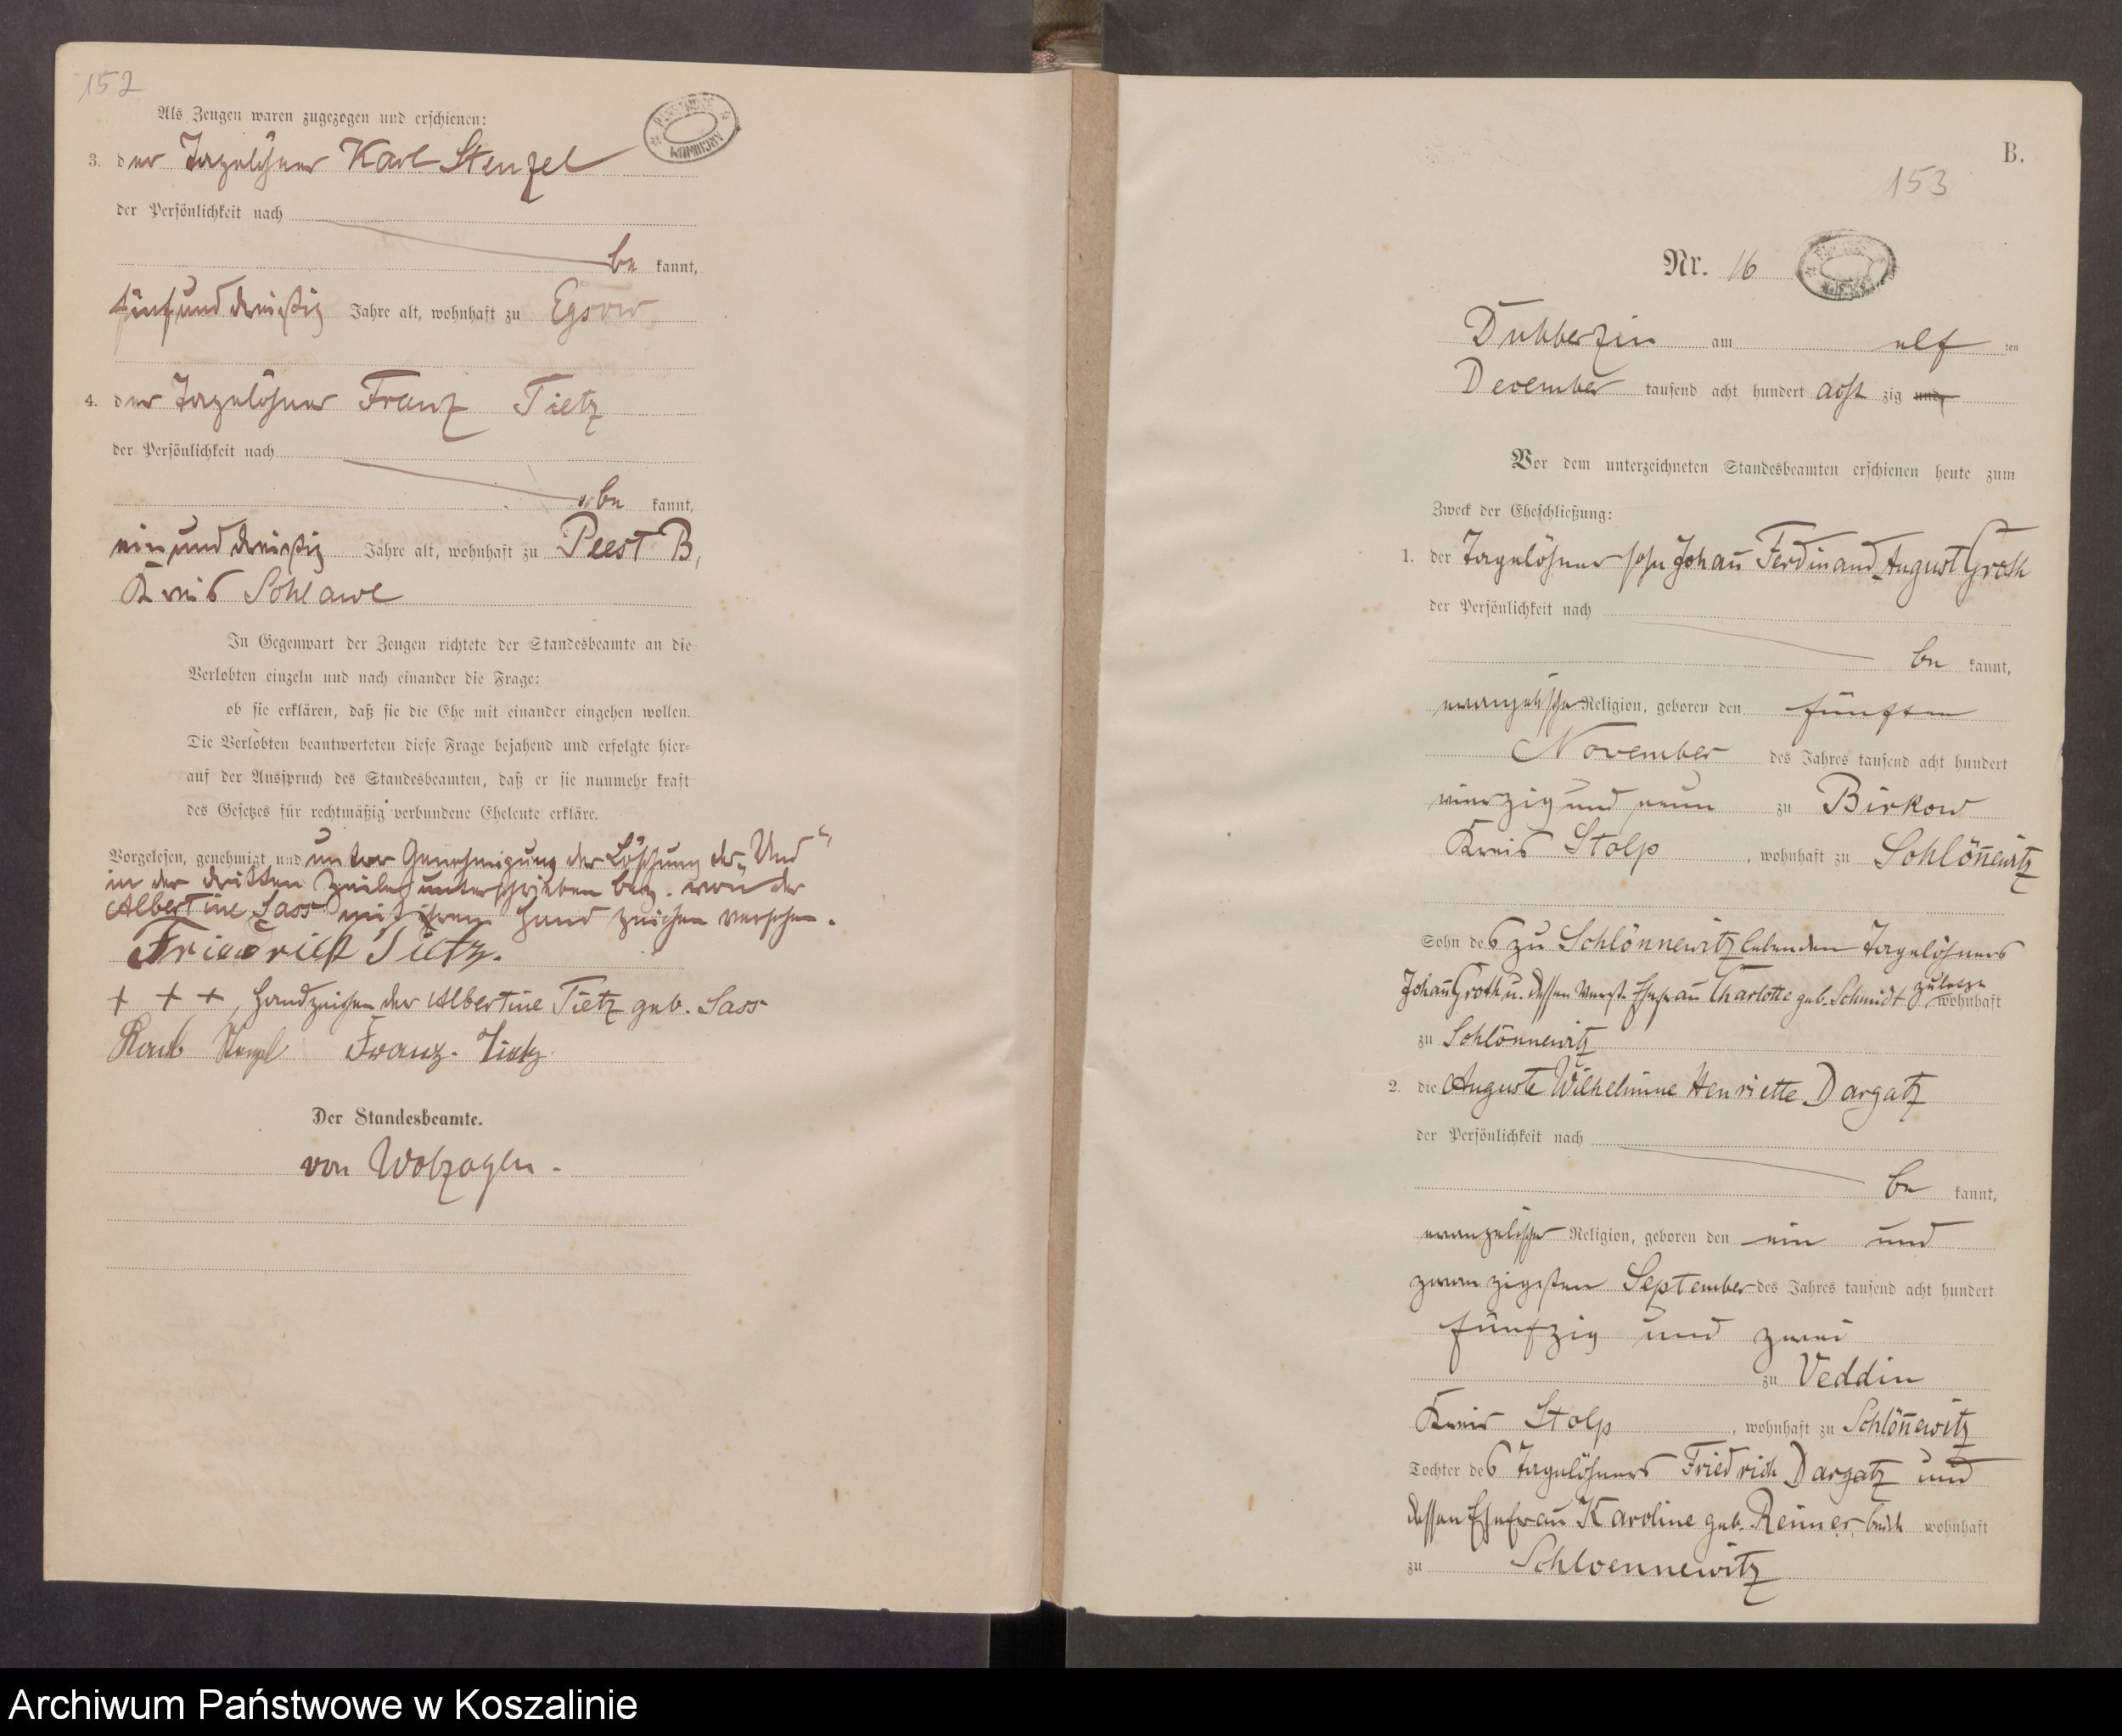 152
Als Zeugen waren zugezogen und erschienen:
3. der Tagelöhner Karl Stenzel
der Persönlichkeit nach
be kannt,
fünfunddreißig Jahre alt, wohnhaft zu Egsow
4. der Tagelöhner Franz Tietz
der Persönlichkeit nach
be kannt,
einunddreißig Jahre alt, wohnhaft zu Peest B,
Kreis Schlawe
In Gegenwart der Zeugen richtete der Standesbeamte an die
Verlobten einzeln und nach einander die Frage:
ob sie erklären, daß sie die Ehe mit einander eingehen wollen.
Die Verlobten beantworteten diese Frage bejahend und erfolgte hier-
auf der Ausspruch des Standesbeamten, daß er sie nunmehr kraft
des Gesetzes für rechtmäßig verbundene Eheleute erkläre.
Vorgelesen, genehmigt und unter Genehmigung der Löschung des „Und“
in der dritten Zeile unterschrieben bez. von der
Albertine Sass mit ihrem Handzeichen versehen.
Friedrich Tietz.
+ + +, Handzeichen der Albertine Tietz geb. Sass
Karl Stenzel Franz Tietz
Der Standesbeamte.
von Wolzogen.
B.
153
Nr. 16
Dubberzin am elf ten
December tausend acht hundert acht zig und
Vor dem unterzeichneten Standesbeamten erschienen heute zum
Zweck der Eheschließung:
1. der Tagelöhnersohn Johañ Ferdinand August Groth
der Persönlichkeit nach
be kannt,
evangelischer Religion, geboren den fünften
November des Jahres tausend acht hundert
vierzig und neun zu Birkow
Kreis Stolp, wohnhaft zu Schlöñewitz
Sohn des zu Schlönnewitz lebenden Tagelöhners
Johañ Groth u. dessen verst. Ehefrau Charlotte geb. Schmidt zuletzt wohnhaft
zu Schlönnewitz
2. die Auguste Wilhelmine Henriette Dargatz
der Persönlichkeit nach
be kannt,
evangelischer Religion, geboren den ein und
zwanzigsten September des Jahres tausend acht hundert
fünfzig und zwei
zu Veddin
Kreis Stolp, wohnhaft zu Schlöñewitz
Tochter des Tagelöhners Friedrich Dargatz und
dessen Ehefrau Karoline geb. Reimer, beide wohnhaft
zu Schloennewitz
Archiwum Państwowe w Koszalinie